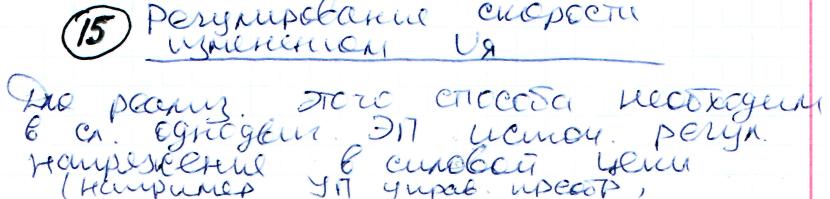 15 Регулирование скорости
изменением Uя
Для реализ. этого способа необходим
в сл. однодвиг. ЭП источ. регул.
напряжения в силовой цепи
(например УП управ. преобр,